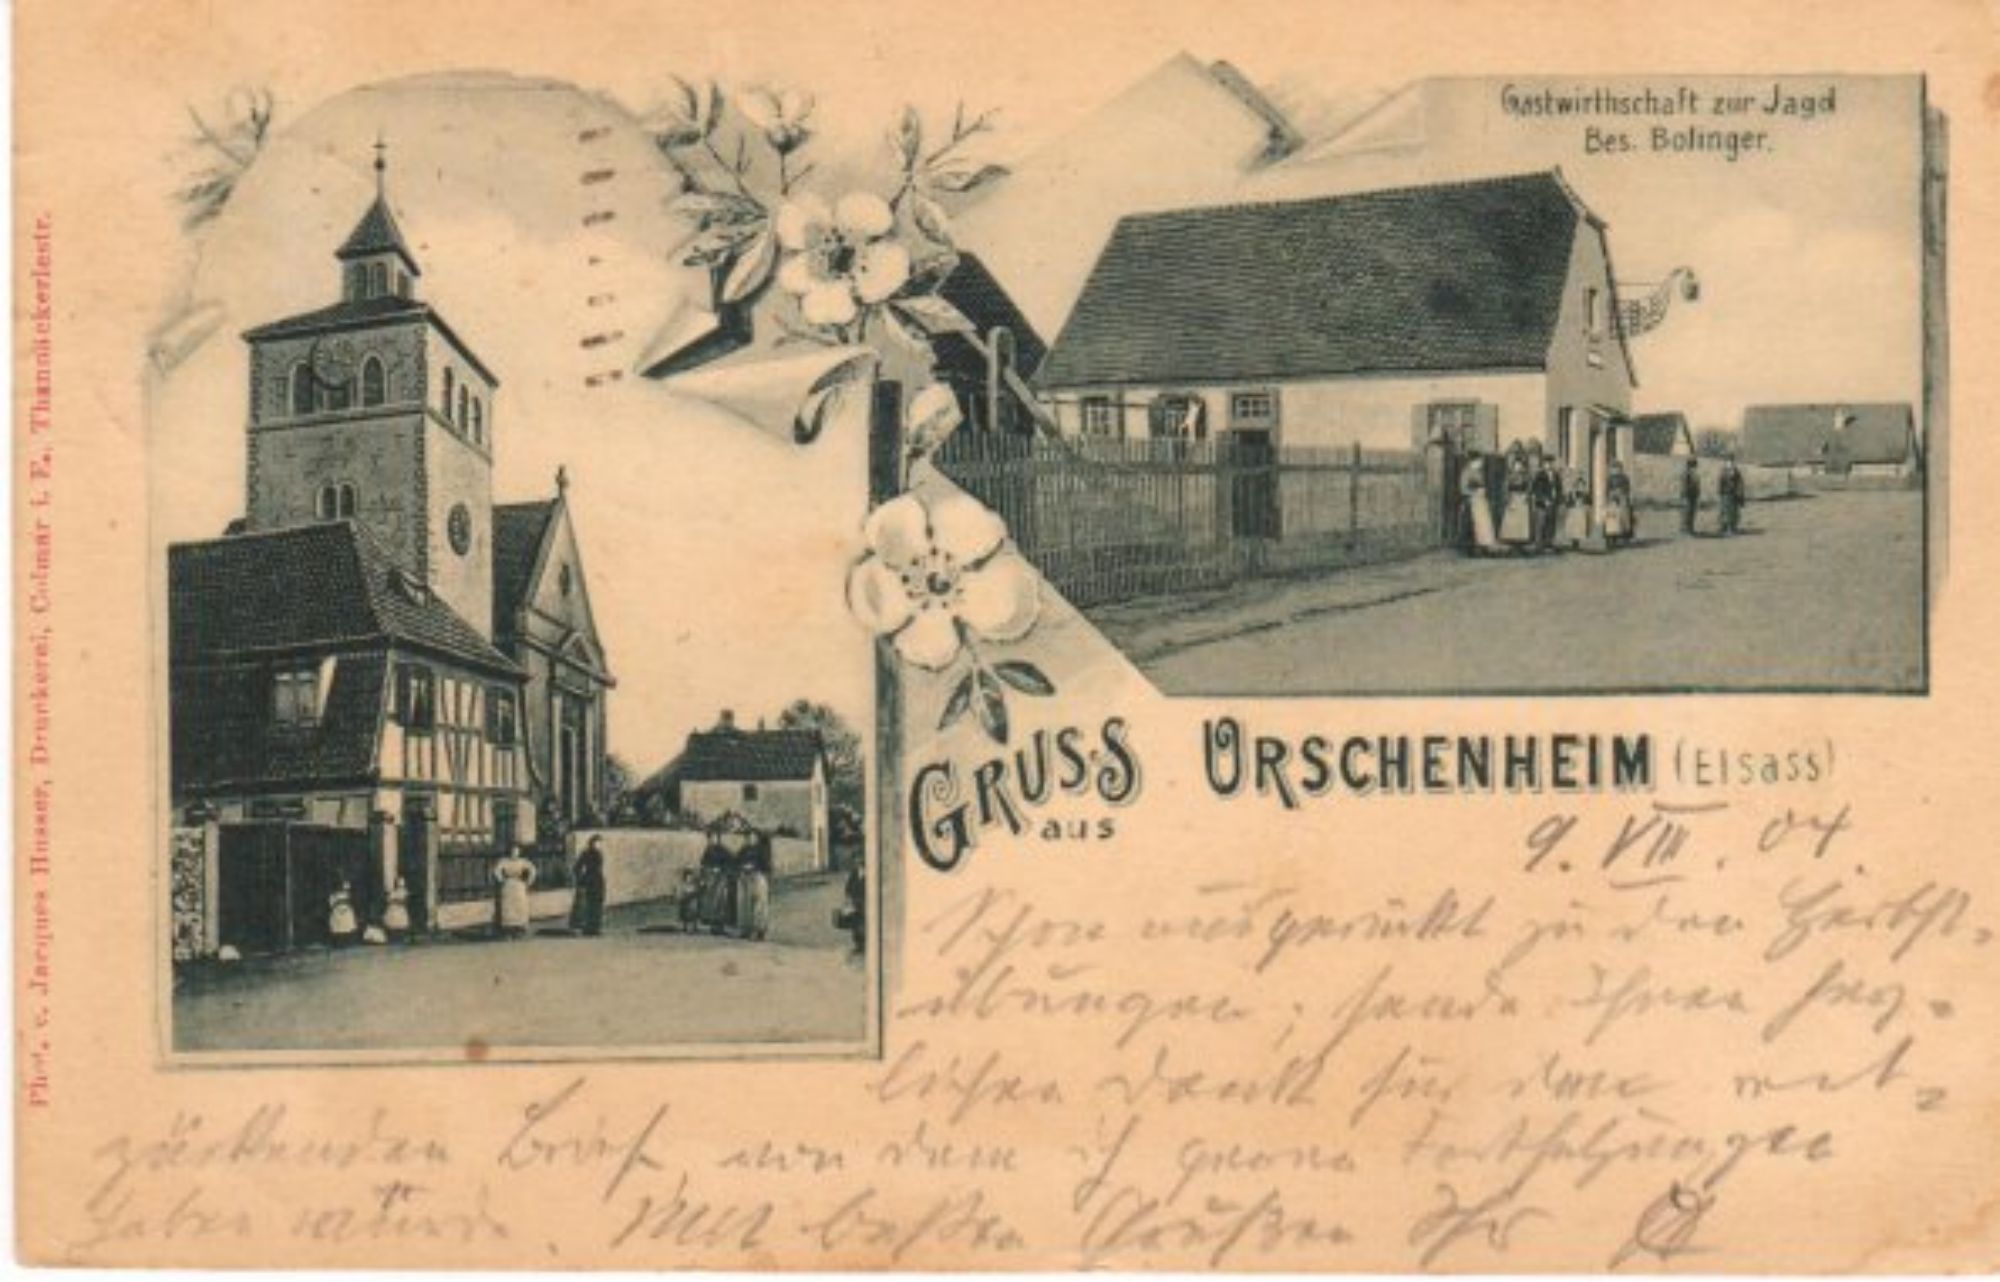 Gastwirthschaft zur Jagd
Bes. Bolinger.
Phot. v. Jacques Husser, Druckerei, Colmar i. E., Thannäckerlestr.
GRUSS aus URSCHENHEIM (Elsass)
9. VIII. 04.
Schon ausgerückt zu den Herbst-
übungen, sende Ihnen herz-
lichen Dank für den ent-
zückenden Brief, von dem ich gerne Fortsetzungen
haben würde. Mit besten Grüßen Ihr